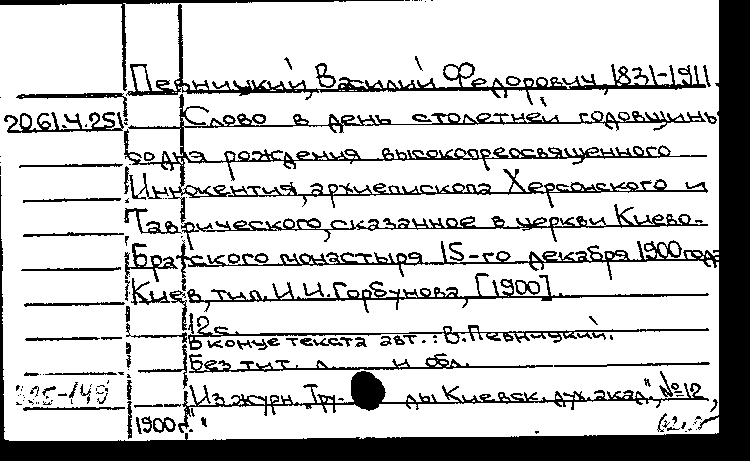 Певницкий, Василий Федорович, 1831-1911.
20.61.4.251 Слово в день столетней годовщины
со дня рождения высокопреосвященного
Иннокентия, архиепископа Херсонского и
Таврического, сказанное в церкви Киево-
Братского монастыря 15-го декабря 1900 года
Киев, тип. И.И. Горбунова, [1900].
12с.
В конце текста авт.: В. Певницкий.
Без тит. л. и обл.
Из журн. "Тру- ды Киевск. дух. акад.", №12,
1900г."